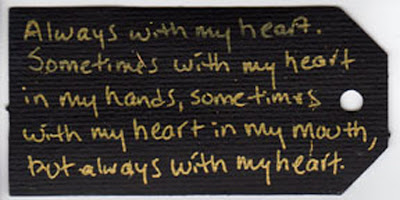 Always with my heart.
Sometimes with my heart
in my hands, sometimes
with my heart in my mouth,
but always with my heart.